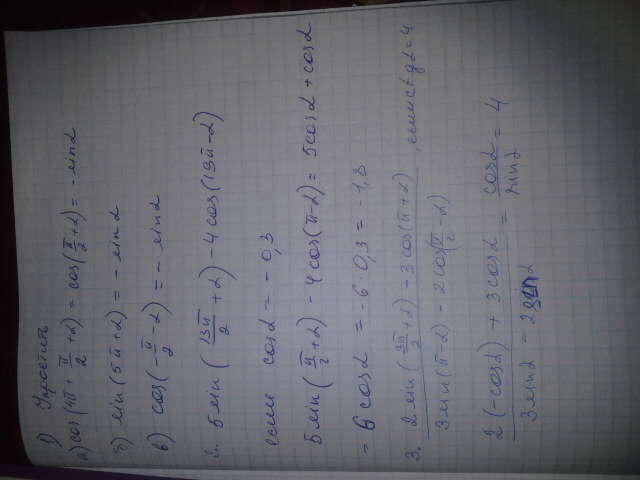 1) Упростить
а) cos(4π + π/2 + α) = cos(π/2 + α) = - sinα
б) sin(5π + α) = - sinα
в) cos(-π/2 - α) = - sinα
2. 5sin(13π/2 + α) - 4cos(19π - α)
если cosα = - 0,3
5sin(π/2 + α) - 4cos(π - α) = 5cosα + cosα
= 6cosα = -6·0,3 = -1,8
3. (2sin(3π/2 + α) - 3cos(π + α)) / (3sin(π - α) - 2cos(π/2 - α)), если ctgα = 4
(2(-cosα) + 3cosα) / (3sinα - 2sinα) = cosα/sinα = 4